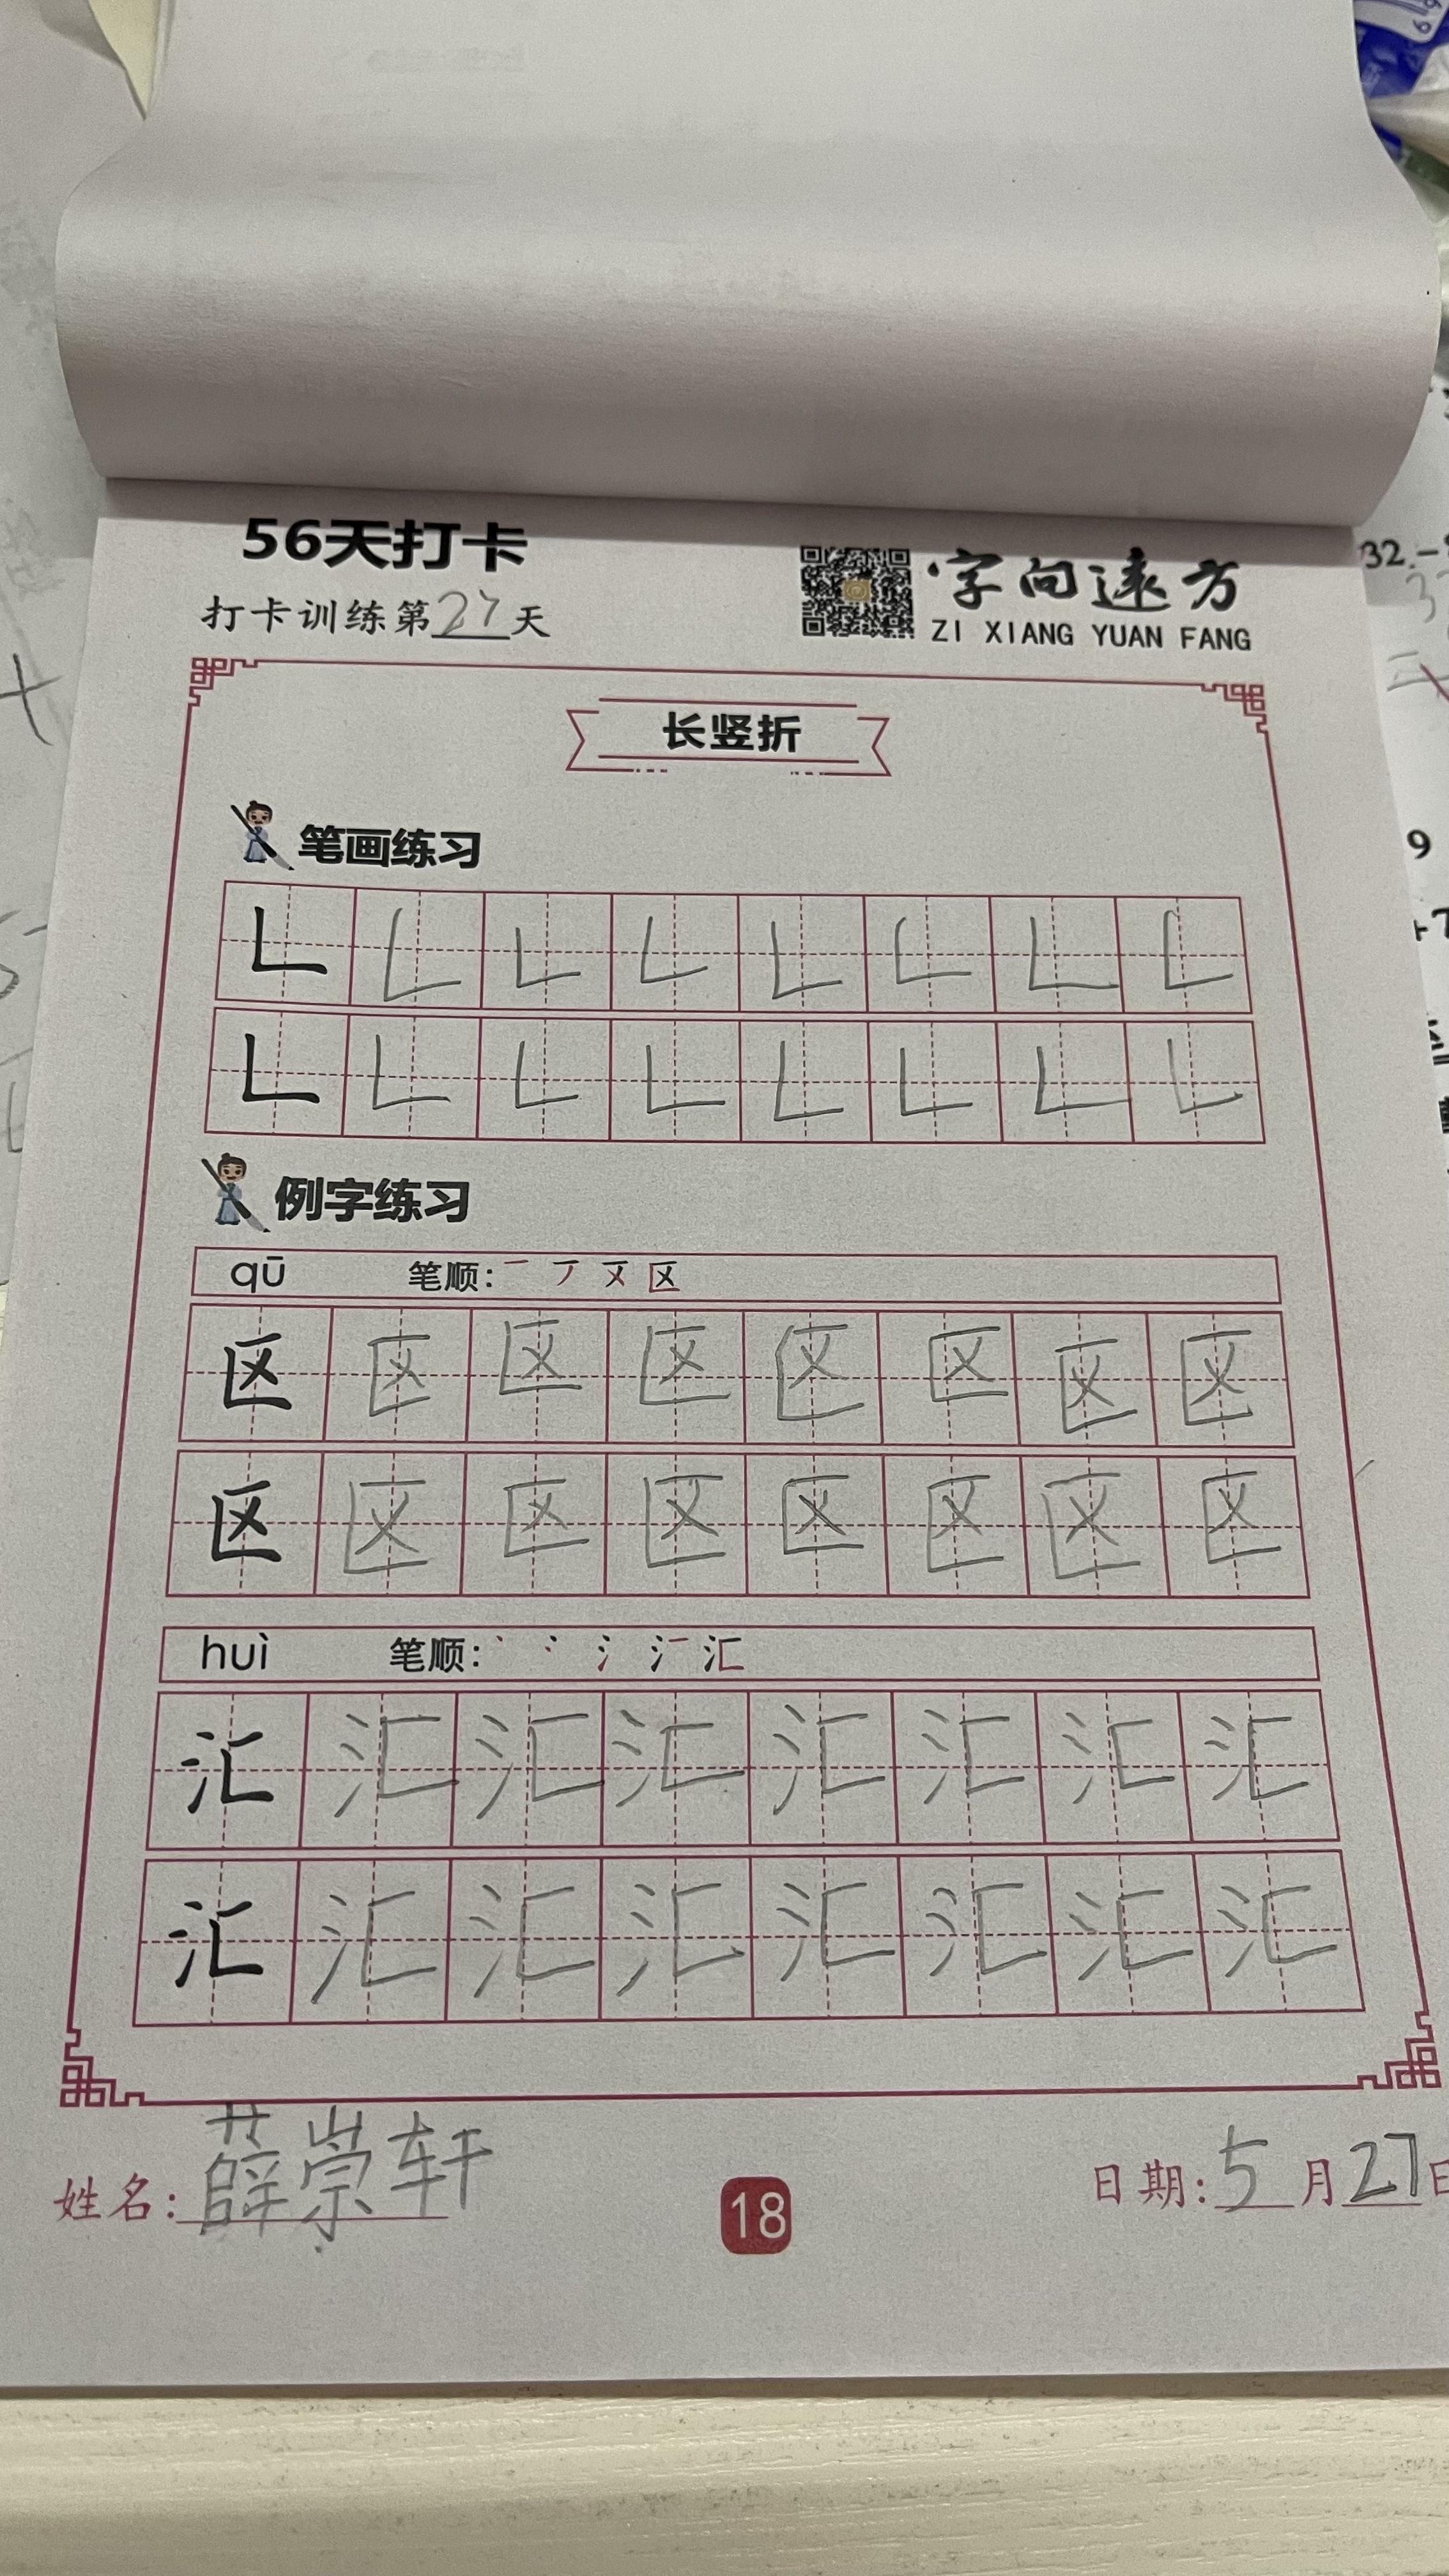 56天打卡
打卡训练第27天
字向远方
ZI XIANG YUAN FANG
长竖折
笔画练习
例字练习
qū 笔顺: 一 丆 区
区 区 区 区 区 区 区 区
区 区 区 区 区 区 区 区
huì 笔顺: 丶 冫 氵 汇
汇 汇 汇 汇 汇 汇 汇 汇
汇 汇 汇 汇 汇 汇 汇 汇
姓名: 薛崇轩
18
日期: 5月27日
32.-
9
+7